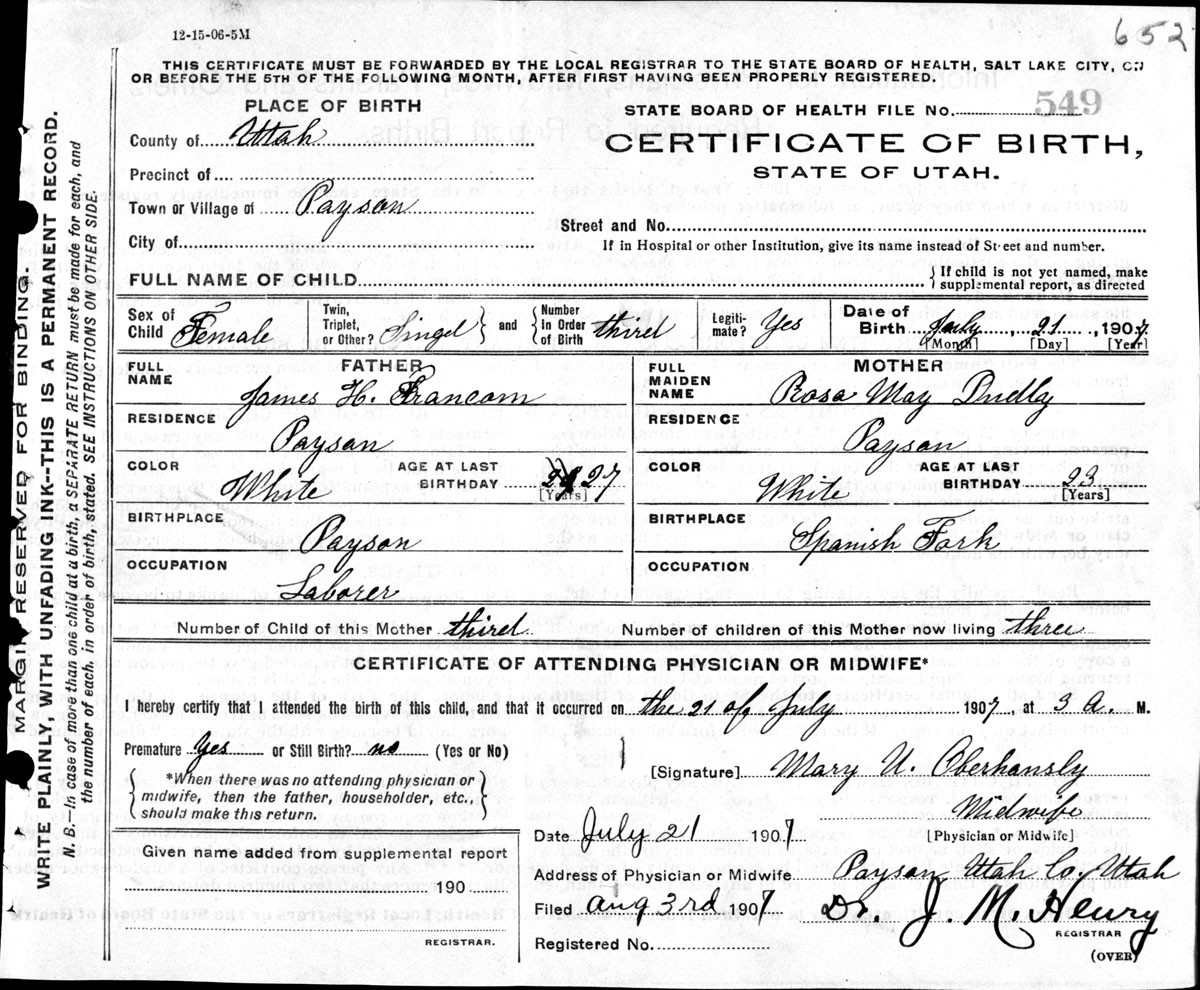 652
12-15-06-5M
THIS CERTIFICATE MUST BE FORWARDED BY THE LOCAL REGISTRAR TO THE STATE BOARD OF HEALTH, SALT LAKE CITY, ON
OR BEFORE THE 5TH OF THE FOLLOWING MONTH, AFTER FIRST HAVING BEEN PROPERLY REGISTERED.
MARGIN RESERVED FOR BINDING.
WRITE PLAINLY, WITH UNFADING INK--THIS IS A PERMANENT RECORD.
N. B. In case of more than one child at a birth, a SEPARATE RETURN must be made for each, and
the number of each, in order of birth, stated. SEE INSTRUCTIONS ON OTHER SIDE.
PLACE OF BIRTH
County of Utah
Precinct of
Town or Village of Payson
City of
STATE BOARD OF HEALTH FILE No. 549
CERTIFICATE OF BIRTH,
STATE OF UTAH.
Street and No.
If in Hospital or other Institution, give its name instead of Street and number.
FULL NAME OF CHILD
If child is not yet named, make
supplemental report, as directed
Sex of Child Female
Twin, Triplet, or Other? Singel
and
Number in Order of Birth third
Legiti-mate? Yes
Date of Birth July, 21, 1907
[Month] [Day] [Year]
FATHER
FULL NAME James H. Francom
RESIDENCE Payson
COLOR White
AGE AT LAST BIRTHDAY 27
[Years]
BIRTHPLACE Payson
OCCUPATION Laborer
MOTHER
FULL MAIDEN NAME Rosa May Duelly
RESIDENCE Payson
COLOR White
AGE AT LAST BIRTHDAY 23
[Years]
BIRTHPLACE Spanish Fork
OCCUPATION
Number of Child of this Mother third
Number of children of this Mother now living three
CERTIFICATE OF ATTENDING PHYSICIAN OR MIDWIFE*
I hereby certify that I attended the birth of this child, and that it occurred on the 21 of July 1907, at 3 A. M.
Premature yes or Still Birth? no (Yes or No)
*When there was no attending physician or
midwife, then the father, householder, etc.,
should make this return.
[Signature] Mary U. Oberhansly
Midwife
[Physician or Midwife]
Date July 21 1907
Given name added from supplemental report
190
REGISTRAR.
Address of Physician or Midwife Payson, Utah Co, Utah
Filed Aug 3rd 1907
Dr. J. M. Henry
REGISTRAR
Registered No.
(OVER)